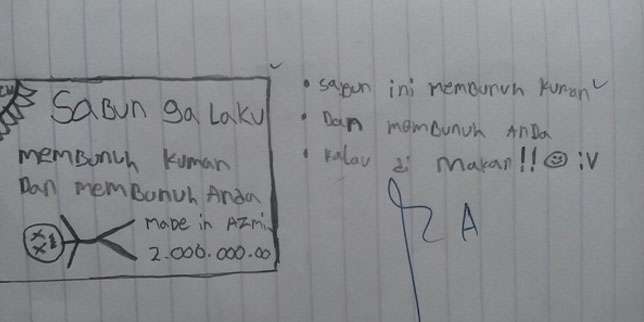 Sabun ga Laku
membunuh kuman
Dan membunuh Anda
made in Azmi
2.000.000.00
• sabun ini membunuh kuman
• Dan membunuh Anda
• kalau di makan!! ☺ :V
A